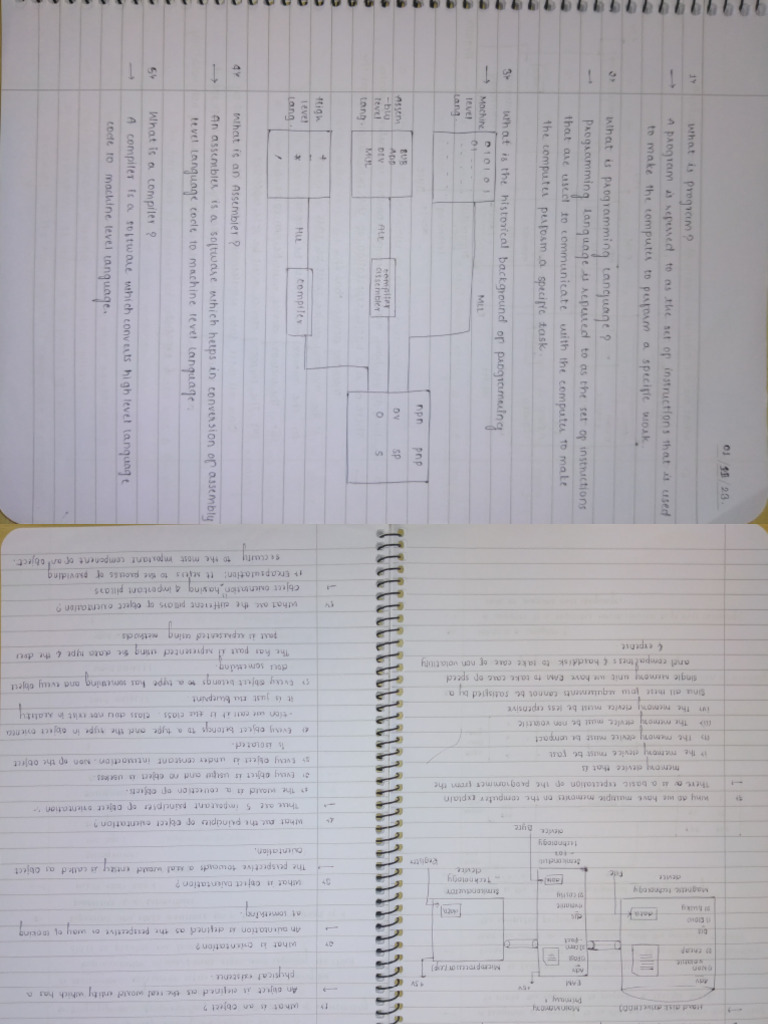 1) What is program?
→ A program is refered to as the set of instructions that is used
to make the computer to perform a specific work.
2) What is programming language?
→ programming language is refered to as the set of instructions
that are used to communicate with the computer to make
the computer perform a specific task.
3) What is the historical background of programming
→ Machine level Lang.
0 1 0 1 0 1
0 1
MLL
Assem-bly level Lang.
SUB
ADD
DIV
MUL
ALL
compiler
assembler
High level Lang.
+
-
*
/
HLL
compiler
npn pnp
5V 5P
0 5
4) What is an Assembler?
→ An assembler is a software which helps in conversion of assembly
level language code to machine level language.
5) What is a compiler?
→ A compiler is a software which converts high level language
code to machine level language.
1) What is an object?
→ An object is defined as the real world entity which has a
physical existence.
2) What is orientation?
→ An orientation is defined as the perspective or way of looking
at something.
3) What is object orientation?
→ The perspective towards a real world entity is called as object
orientation.
4) What are the principles of object orientation?
→ There are 5 important principles of object orientation :-
1) The world is a collection of objects.
2) Every object is useful and no object is useless.
3) Every object is under constant interaction. None of the object
is isolated.
4) Every object belongs to a type and the type in object orienta
-tion we call it is the class. Class does not exist in reality
it is just the blueprint
5) Every object belongs to a type has something and every object
does something.
The has part is represented using the data type & the does
part is represented using methods.
5) What are the different pillars of object orientation?
→ object orientation having 4 important pillars
1) Encapsulation: It refers to the process of providing
security to the most important component of an object.
Hard disk drive (HDD)
Magnetic technology
device
File
Mainmemory
Primary
RAM
Semiconductor
technology
device
Byte
Microprocessor
+5v
+5v
Semiconductor
- Technology
device
Register
6) why do we have multiple memories on the computer explain
→ There is a basic expectation of the programmer from the
memory device that is
i) the memory device must be fast
ii) The memory device must be compact
iii) The memory device must be non volatile
iv) The memory device must be less expensive
Since all these four requirements cannot be satisfied by a
single memory unit we have RAM to take care of speed
and compactness & harddisk to take care of non volatility
& expense